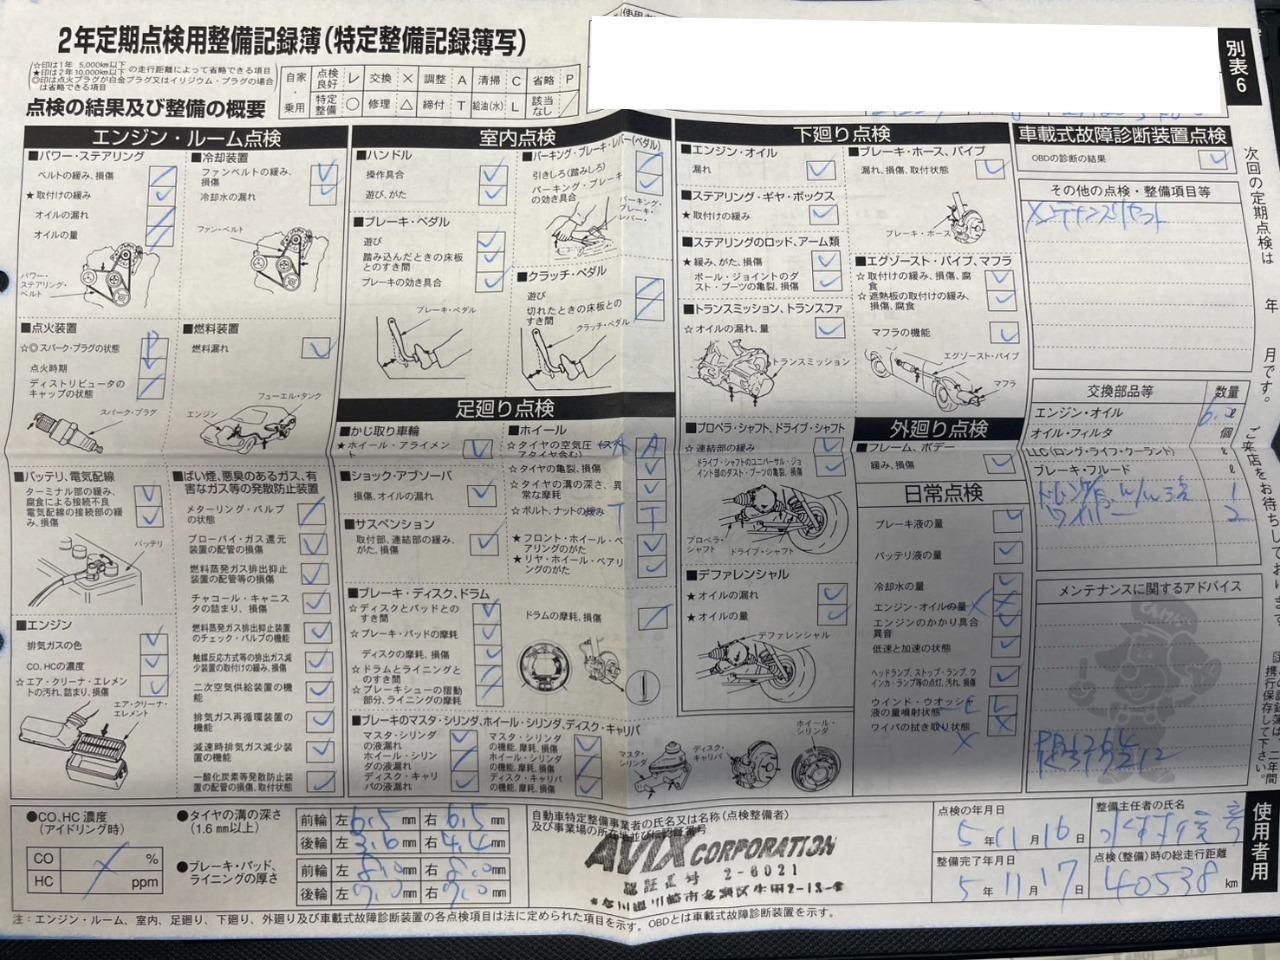 2年定期点検用整備記録簿(特定整備記録簿写)
別表6
☆印は1年 5,000km以下
★印は2年10,000km以下
の走行距離によって省略できる項目
◎印は点火プラグが白金プラグ又はイリジウム・プラグの場合
は省略できる項目
点検の結果及び整備の概要
自家・乗用
点検良好 レ 交換 × 調整 A 清掃 C 省略 P
特定整備 ○ 修理 △ 締付 T 給油(水) L 該当なし /
エンジン・ルーム点検
■パワー・ステアリング
ベルトの緩み、損傷
★取付けの緩み
オイルの漏れ
オイルの量
パワー・ステアリング・ベルト
■冷却装置
ファンベルトの緩み、損傷
冷却水の漏れ
ファン・ベルト
■点火装置
☆◎スパーク・プラグの状態 P
点火時期
ディストリビュータのキャップの状態
スパーク・プラグ
■燃料装置
燃料漏れ
フューエル・タンク
エンジン
■バッテリ、電気配線
ターミナル部の緩み、腐食による接続不良
電気配線の接続部の緩み、損傷
バッテリ
■エンジン
排気ガスの色
CO、HCの濃度
☆エア・クリーナ・エレメントの汚れ、詰まり、損傷
エア・クリーナ・エレメント
■ばい煙、悪臭のあるガス、有害なガス等の発散防止装置
メターリング・バルブの状態
ブローバイ・ガス還元装置の配管の損傷
燃料蒸発ガス排出抑止装置の配管等の損傷
チャコール・キャニスタの詰まり、損傷
燃料蒸発ガス排出抑止装置のチェック・バルブの機能
触媒反応方式等の排出ガス減少装置の取付けの緩み、損傷
二次空気供給装置の機能
排気ガス再循環装置の機能
減速時排気ガス減少装置の機能
一酸化炭素等発散防止装置の配管の損傷、取付状態
室内点検
■ハンドル
操作具合
遊び、がた
■ブレーキ・ペダル
遊び
踏み込んだときの床板とのすき間
ブレーキの効き具合
ブレーキ・ペダル
■パーキング・ブレーキ・レバー(ペダル)
引きしろ(踏みしろ)
パーキング・ブレーキの効き具合
パーキング・ブレーキ・レバー
■クラッチ・ペダル
遊び
切れたときの床板とのすき間
クラッチ・ペダル
足廻り点検
■かじ取り車輪
★ホイール・アライメント
■ショック・アブソーバ
損傷、オイルの漏れ
■サスペンション
取付部、連結部の緩み、がた、損傷
■ホイール
☆タイヤの空気圧(スペアタイヤ含む) A
☆タイヤの亀裂、損傷
☆タイヤの溝の深さ、異常な摩耗
☆ボルト、ナットの緩み T
★フロント・ホイール・ベアリングのがた
★リヤ・ホイール・ベアリングのがた
■ブレーキ・ディスク、ドラム
☆ディスクとパッドとのすき間
☆ブレーキ・パッドの摩耗
ディスクの摩耗、損傷
☆ドラムとライニングとのすき間
☆ブレーキシューの摺動部分、ライニングの摩耗
ドラムの摩耗、損傷
■ブレーキのマスタ・シリンダ、ホイール・シリンダ、ディスク・キャリパ
マスタ・シリンダの液漏れ
ホイール・シリンダの液漏れ
ディスク・キャリパの液漏れ
マスタ・シリンダの機能、摩耗、損傷
ホイール・シリンダの機能、摩耗、損傷
ディスク・キャリパの機能、摩耗、損傷
マスタ・シリンダ
ディスク・キャリパ
ホイール・シリンダ
下廻り点検
■エンジン・オイル
漏れ
■ステアリング・ギヤ・ボックス
★取付けの緩み
■ステアリングのロッド、アーム類
★緩み、がた、損傷
ボール・ジョイントのダスト・ブーツの亀裂、損傷
■トランスミッション、トランスファ
☆オイルの漏れ、量
トランスミッション
■プロペラ・シャフト、ドライブ・シャフト
☆連結部の緩み
ドライブ・シャフトのユニバーサル・ジョイント部のダスト・ブーツの亀裂、損傷
プロペラ・シャフト
ドライブ・シャフト
■デファレンシャル
★オイルの漏れ
★オイルの量
デファレンシャル
■ブレーキ・ホース、パイプ
漏れ、損傷、取付状態
ブレーキ・ホース
■エグゾースト・パイプ、マフラ
☆取付けの緩み、損傷、腐食
☆遮熱板の取付けの緩み、損傷、腐食
マフラの機能
エグゾースト・パイプ
マフラ
外廻り点検
■フレーム、ボデー
緩み、損傷
日常点検
ブレーキ液の量
バッテリ液の量
冷却水の量
エンジン・オイルの量 ×
エンジンのかかり具合、異音
低速と加速の状態
ヘッドランプ、ストップ・ランプ、ウインカ・ランプ等の点灯、汚れ、損傷
ウインド・ウオッシャ液の量噴射状態 L
ワイパの拭き取り状態 ×
車載式故障診断装置点検
OBDの診断の結果
その他の点検・整備項目等
メンテナンスリセット
交換部品等 数量
エンジン・オイル 6.2 ℓ
オイル・フィルタ 個
LLC(ロング・ライフ・クーラント) ℓ
ブレーキ・フルード ℓ
ワイパー 2
メンテナンスに関するアドバイス
次回の定期点検は 年 月です。
ご来店をお待ちしております。
●CO、HC濃度
(アイドリング時)
CO %
HC ppm
●タイヤの溝の深さ
(1.6mm以上)
前輪 左 6.5 mm 右 6.5 mm
後輪 左 3.6 mm 右 4.4 mm
●ブレーキ・パッド、ライニングの厚さ
前輪 左 8.0 mm 右 8.0 mm
後輪 左 9.0 mm 右 9.0 mm
自動車特定整備事業者の氏名又は名称(点検整備者)
及び事業場の所在地並びに認証番号
AVIX CORPORATION
認証番号 2-6021
点検の年月日
5 年 11 月 16 日
整備完了年月日
5 年 11 月 17 日
整備主任者の氏名
点検(整備)時の総走行距離
40538 km
使用者用
注:エンジン・ルーム、室内、足廻り、下廻り、外廻り及び車載式故障診断装置の各点検項目は法に定められた項目を示す。OBDとは車載式故障診断装置を示す。